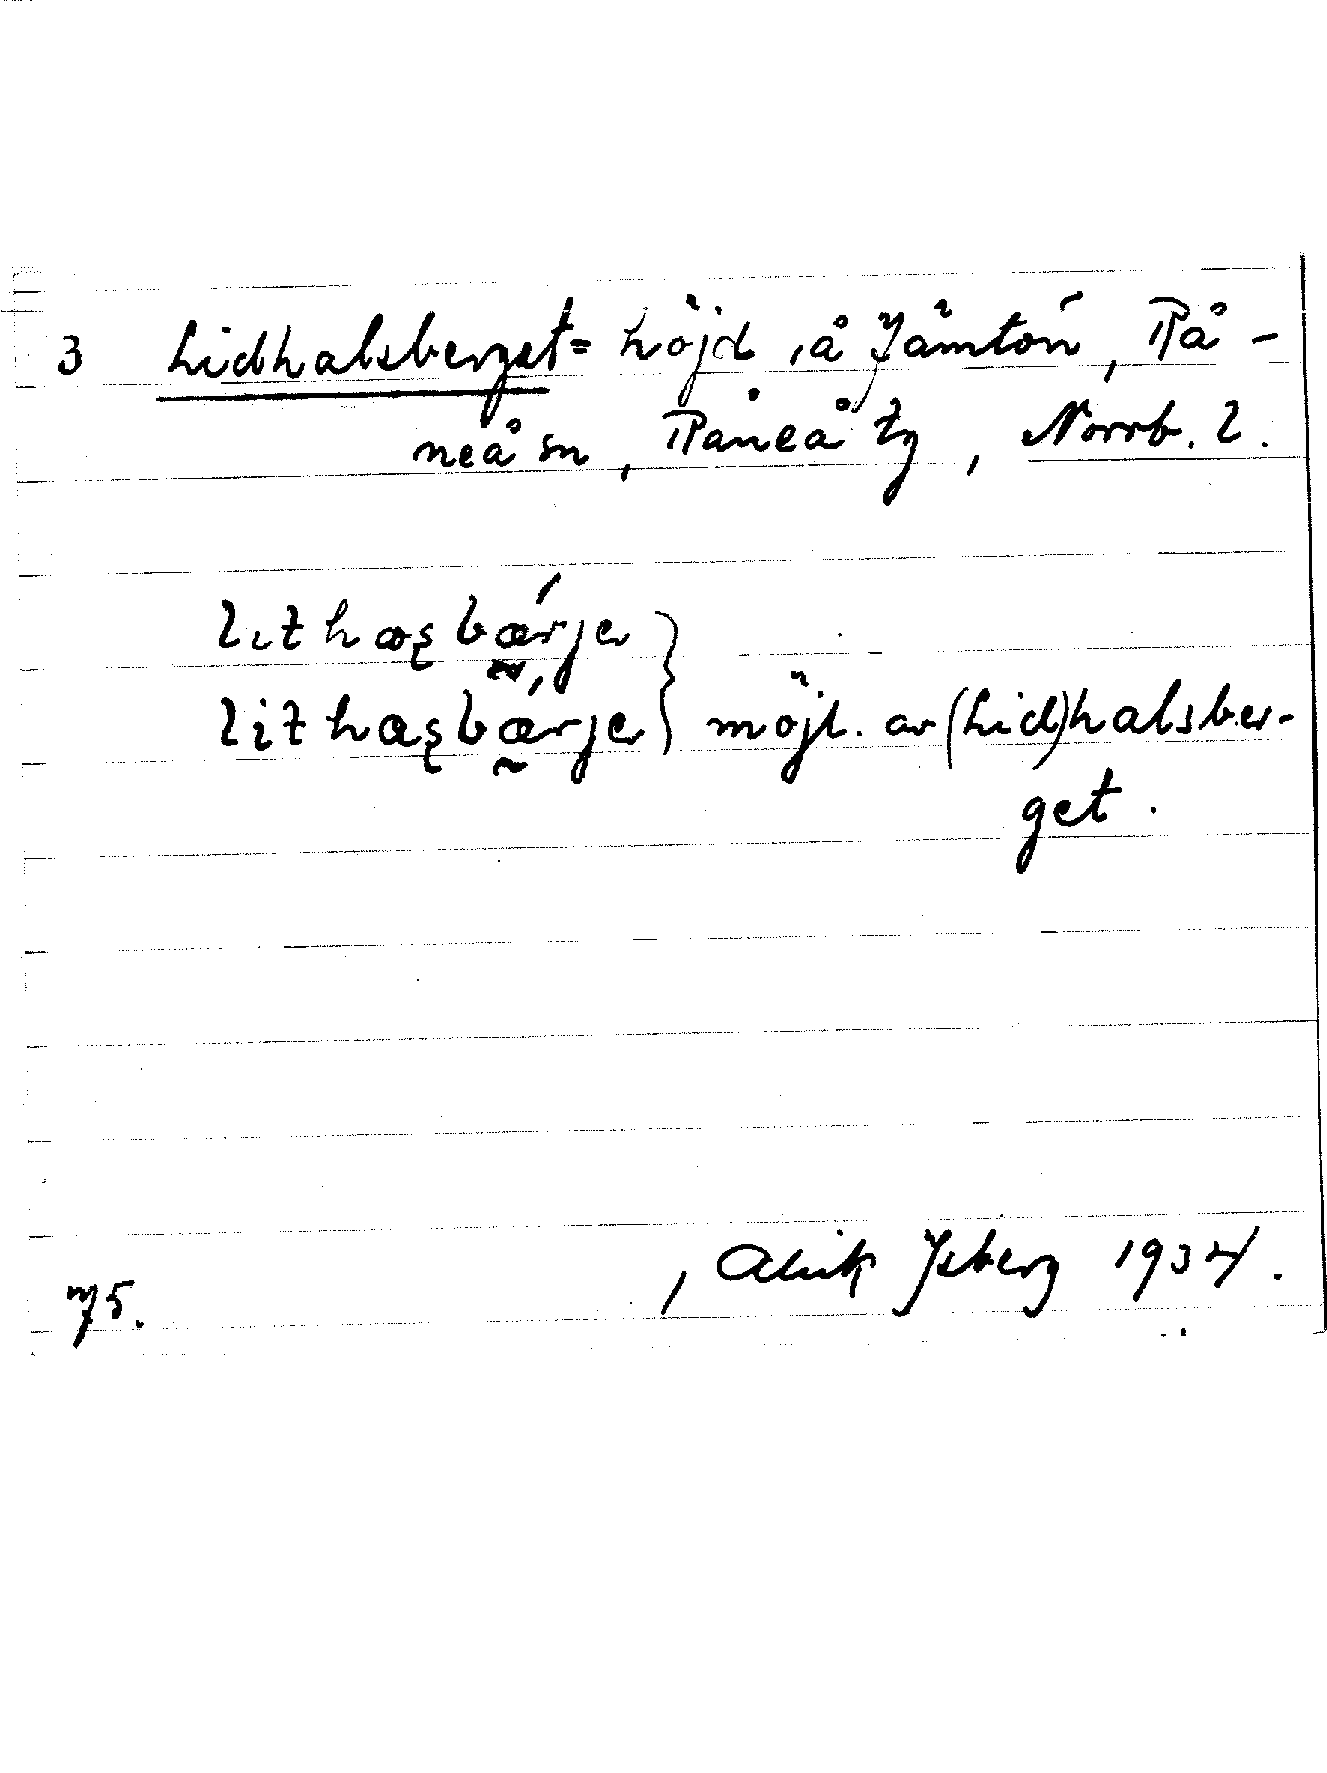 3 Lidhalsberget = höjd, å Jämtön, Rå-
neå sn, Råneå tg, Norrb. l.
lıthæşbǽrje
lithæşbǽrje } möjl. av (Lid)halsber-
get.
75. , Alrik Isberg 1934.